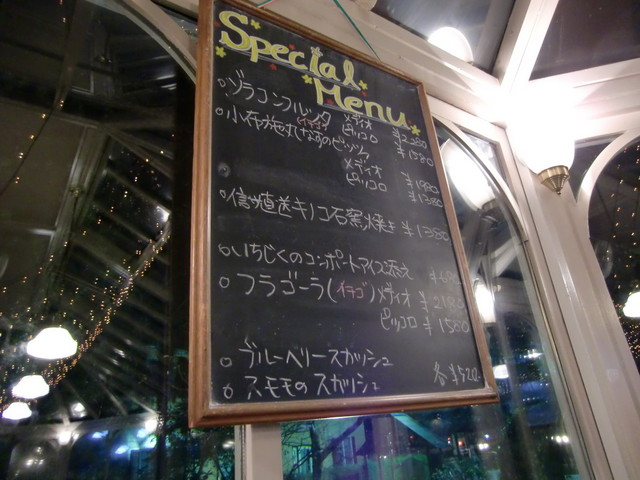 Special
Menu
○グラコンフルッタ メディオ ¥2,280
(イチゴ) ピッコロ ¥1580
○小布施丸なすのピッツァ
メディオ ¥1980
ピッコロ ¥1380
○信州直送キノコ石窯焼き ¥1380
○いちじくのコンポートアイス添え
○フラゴーラ(イチゴ)メディオ
ピッコロ ¥1580
○ブルーベリースカッシュ
○スモモのスカッシュ 各¥520